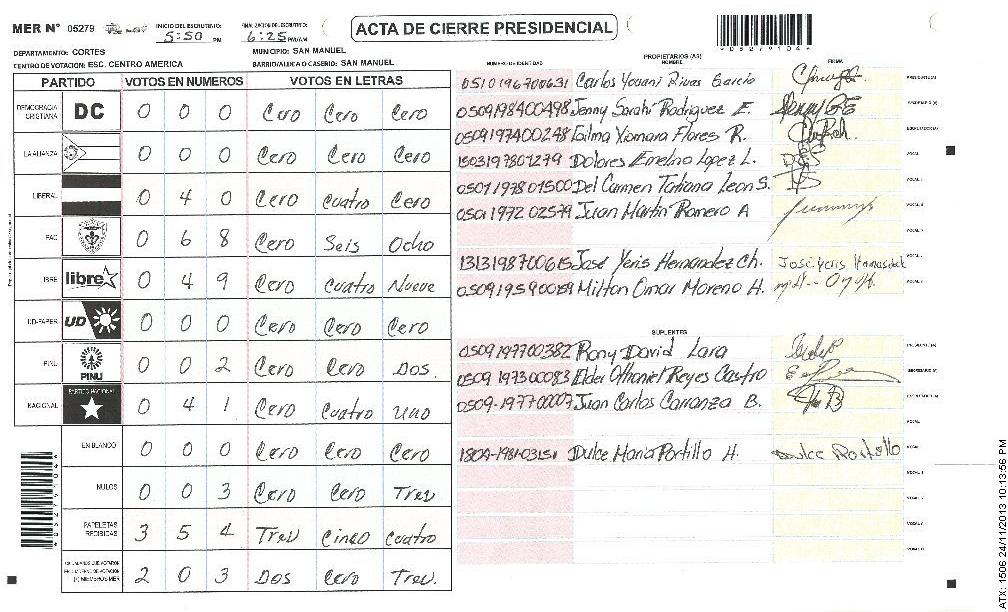 MER N° 05279 INICIO DEL ESCRUTINIO: 5:50 PM FINALIZACION DEL ESCRUTINIO: 6:25 PM/AM
ACTA DE CIERRE PRESIDENCIAL
DEPARTAMENTO: CORTES MUNICIPIO: SAN MANUEL
CENTRO DE VOTACION: ESC. CENTRO AMERICA BARRIO/ALDEA O CASERIO: SAN MANUEL
PARTIDO VOTOS EN NUMEROS VOTOS EN LETRAS
DEMOCRACIA CRISTIANA DC 0 0 0 Cero Cero Cero
LA ALIANZA 0 0 0 Cero Cero Cero
LIBERAL 0 4 0 Cero Cuatro Cero
PAC 0 6 8 Cero Seis Ocho
LIBRE libre 0 4 9 Cero Cuatro Nueve
UD-FAPER UD 0 0 0 Cero Cero Cero
PINU PINU 0 0 2 Cero Cero Dos.
NACIONAL PARTIDO NACIONAL 0 4 1 Cero Cuatro Uno
EN BLANCO 0 0 0 Cero Cero Cero
NULOS 0 0 3 Cero Cero Tres
PAPELETAS RECIBIDAS 3 5 4 Tres Cinco Cuatro
2 0 3 Dos Cero Tres.
PROPIETARIOS (AS)
NUMERO DE IDENTIDAD NOMBRE FIRMA
0510196700631 Carlos Yovani Rivas Garcia PRESIDENTE(A)
0509198400498 Jenny Sarahi Rodriguez E. SECRETARIO(A)
0509197400248 Xiomara Flores R. ESCRUTADOR(A)
1503197801279 Dolores Emelina Lopez L. VOCAL I
0501197801500 Del Carmen Tatiana Leon S. VOCAL
0501197202579 Juan Martin Romero A VOCAL
VOCAL
1313198700615 José Yeris Hernandez Ch. VOCAL
0509195900159 Milton Omar Moreno H. VOCAL
SUPLENTES
0509197700382 Rony David Lara PRESIDENTE(A)
0509197300083 Elder Othoniel Reyes Castro SECRETARIO(A)
0509-19770007 Juan Carlos Carranza B. ESCRUTADOR(A)
VOCAL
1804-1981-03151 Dulce Maria Portillo H. Dulce Portillo VOCAL
VOCAL
VOCAL
VOCAL
VOCAL
ATX: 1506 24/11/2013 10:13:56 PM